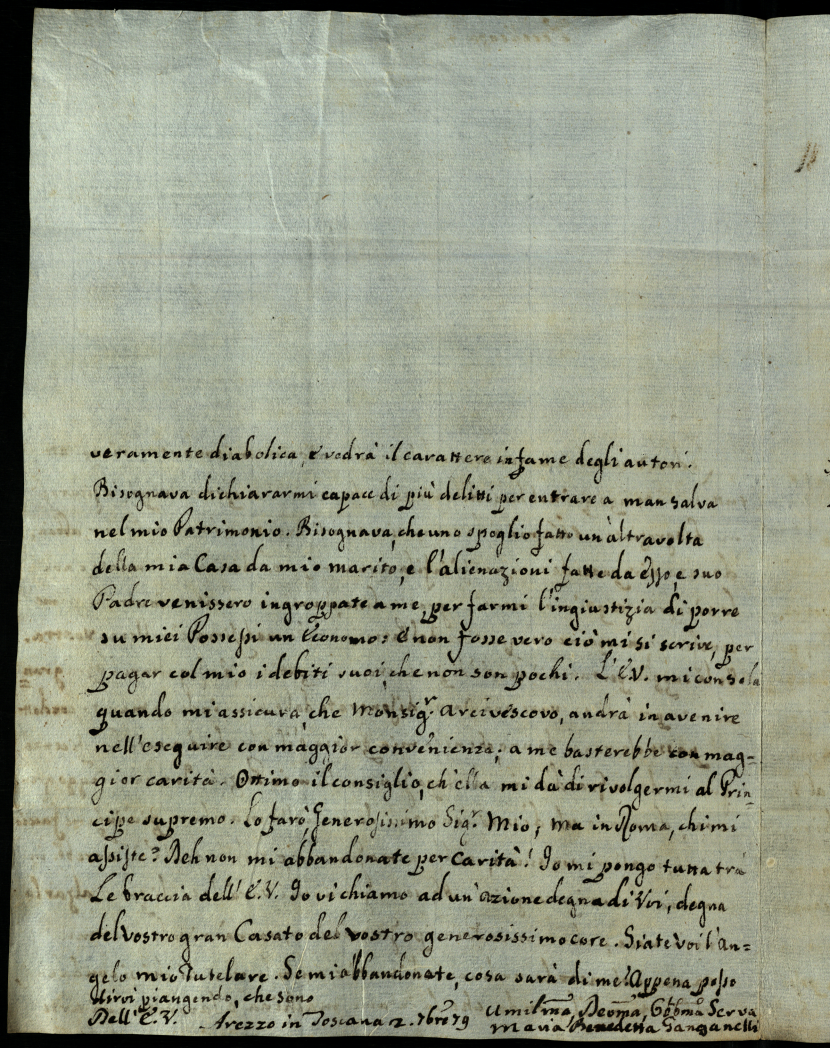 veramente diabolica, e vedrà il carattere infame degli autori.
Bisognava dichiararmi capace di più delitti per entrare a man salva
nel mio Patrimonio. Bisognava, che uno spoglio fatto un'altra volta
della mia Casa da mio marito, e l'alienazioni fatte da Esso, e suo
Padre venissero ingroppate a me, per farmi l'ingiustizia di porre
su miei Possessi un Economo: e non fosse vero ciò mi si scrive, per
pagar col mio i debiti suoi, che non son pochi. L'E.V. mi consola
quando mi assicura, che Monsigr. Arcivescovo, andrà in avenire
nell'eseguire con maggior convenienza; a me basterebbe con mag-
gior carità. Ottimo il consiglio, ch'ella mi dà di rivolgermi al Prin-
cipe supremo. Lo farò, Generosissimo Sigr. Mio, ma in Roma, chi mi
assiste? Deh non mi abbandonate per Carità! Io mi pongo tutta trà
Le braccia dell'E.V. Io vi chiamo ad un'azione degna di Voi, degna
del vostro gran Casato del vostro generosissimo core. Siate voi l'An=
gelo mio Tutelare. Se mi abbandonate, cosa sarà di me? Appena posso
dirvi piangendo, che sono
Dell'E.V. Arezzo in Toscana 2. 7bre 79 Umilma, Devma, Obbma Serva
Maria Benedetta Ganganelli